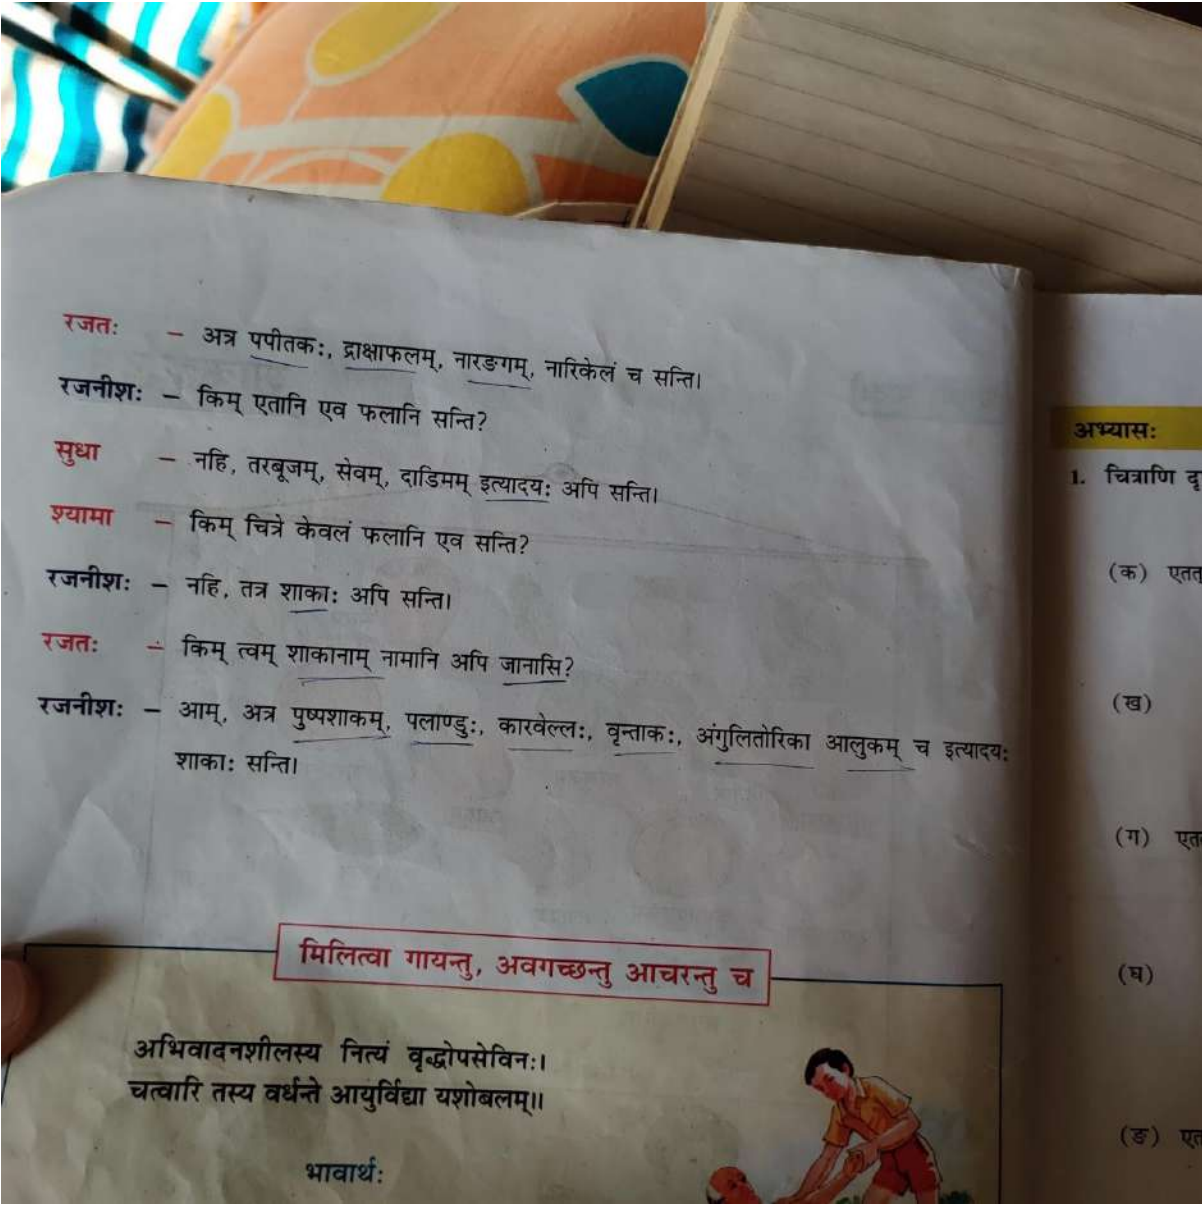 रजतः – अत्र पपीतकः, द्राक्षाफलम्, नारङगम्, नारिकेलं च सन्ति।
रजनीशः – किम् एतानि एव फलानि सन्ति?
सुधा – नहि, तरबूजम्, सेवम्, दाडिमम् इत्यादयः अपि सन्ति।
श्यामा – किम् चित्रे केवलं फलानि एव सन्ति?
रजनीशः – नहि, तत्र शाकाः अपि सन्ति।
रजतः – किम् त्वम् शाकानाम् नामानि अपि जानासि?
रजनीशः – आम्, अत्र पुष्पशाकम्, पलाण्डुः, कारवेल्लः, वृन्ताकः, अंगुलितोरिका आलुकम् च इत्यादयः
शाकाः सन्ति।
मिलित्वा गायन्तु, अवगच्छन्तु आचरन्तु च
अभिवादनशीलस्य नित्यं वृद्धोपसेविनः।
चत्वारि तस्य वर्धन्ते आयुर्विद्या यशोबलम्॥
भावार्थः
अभ्यासः
1. चित्राणि
(क)
(ख)
(ग)
(घ)
(ङ)